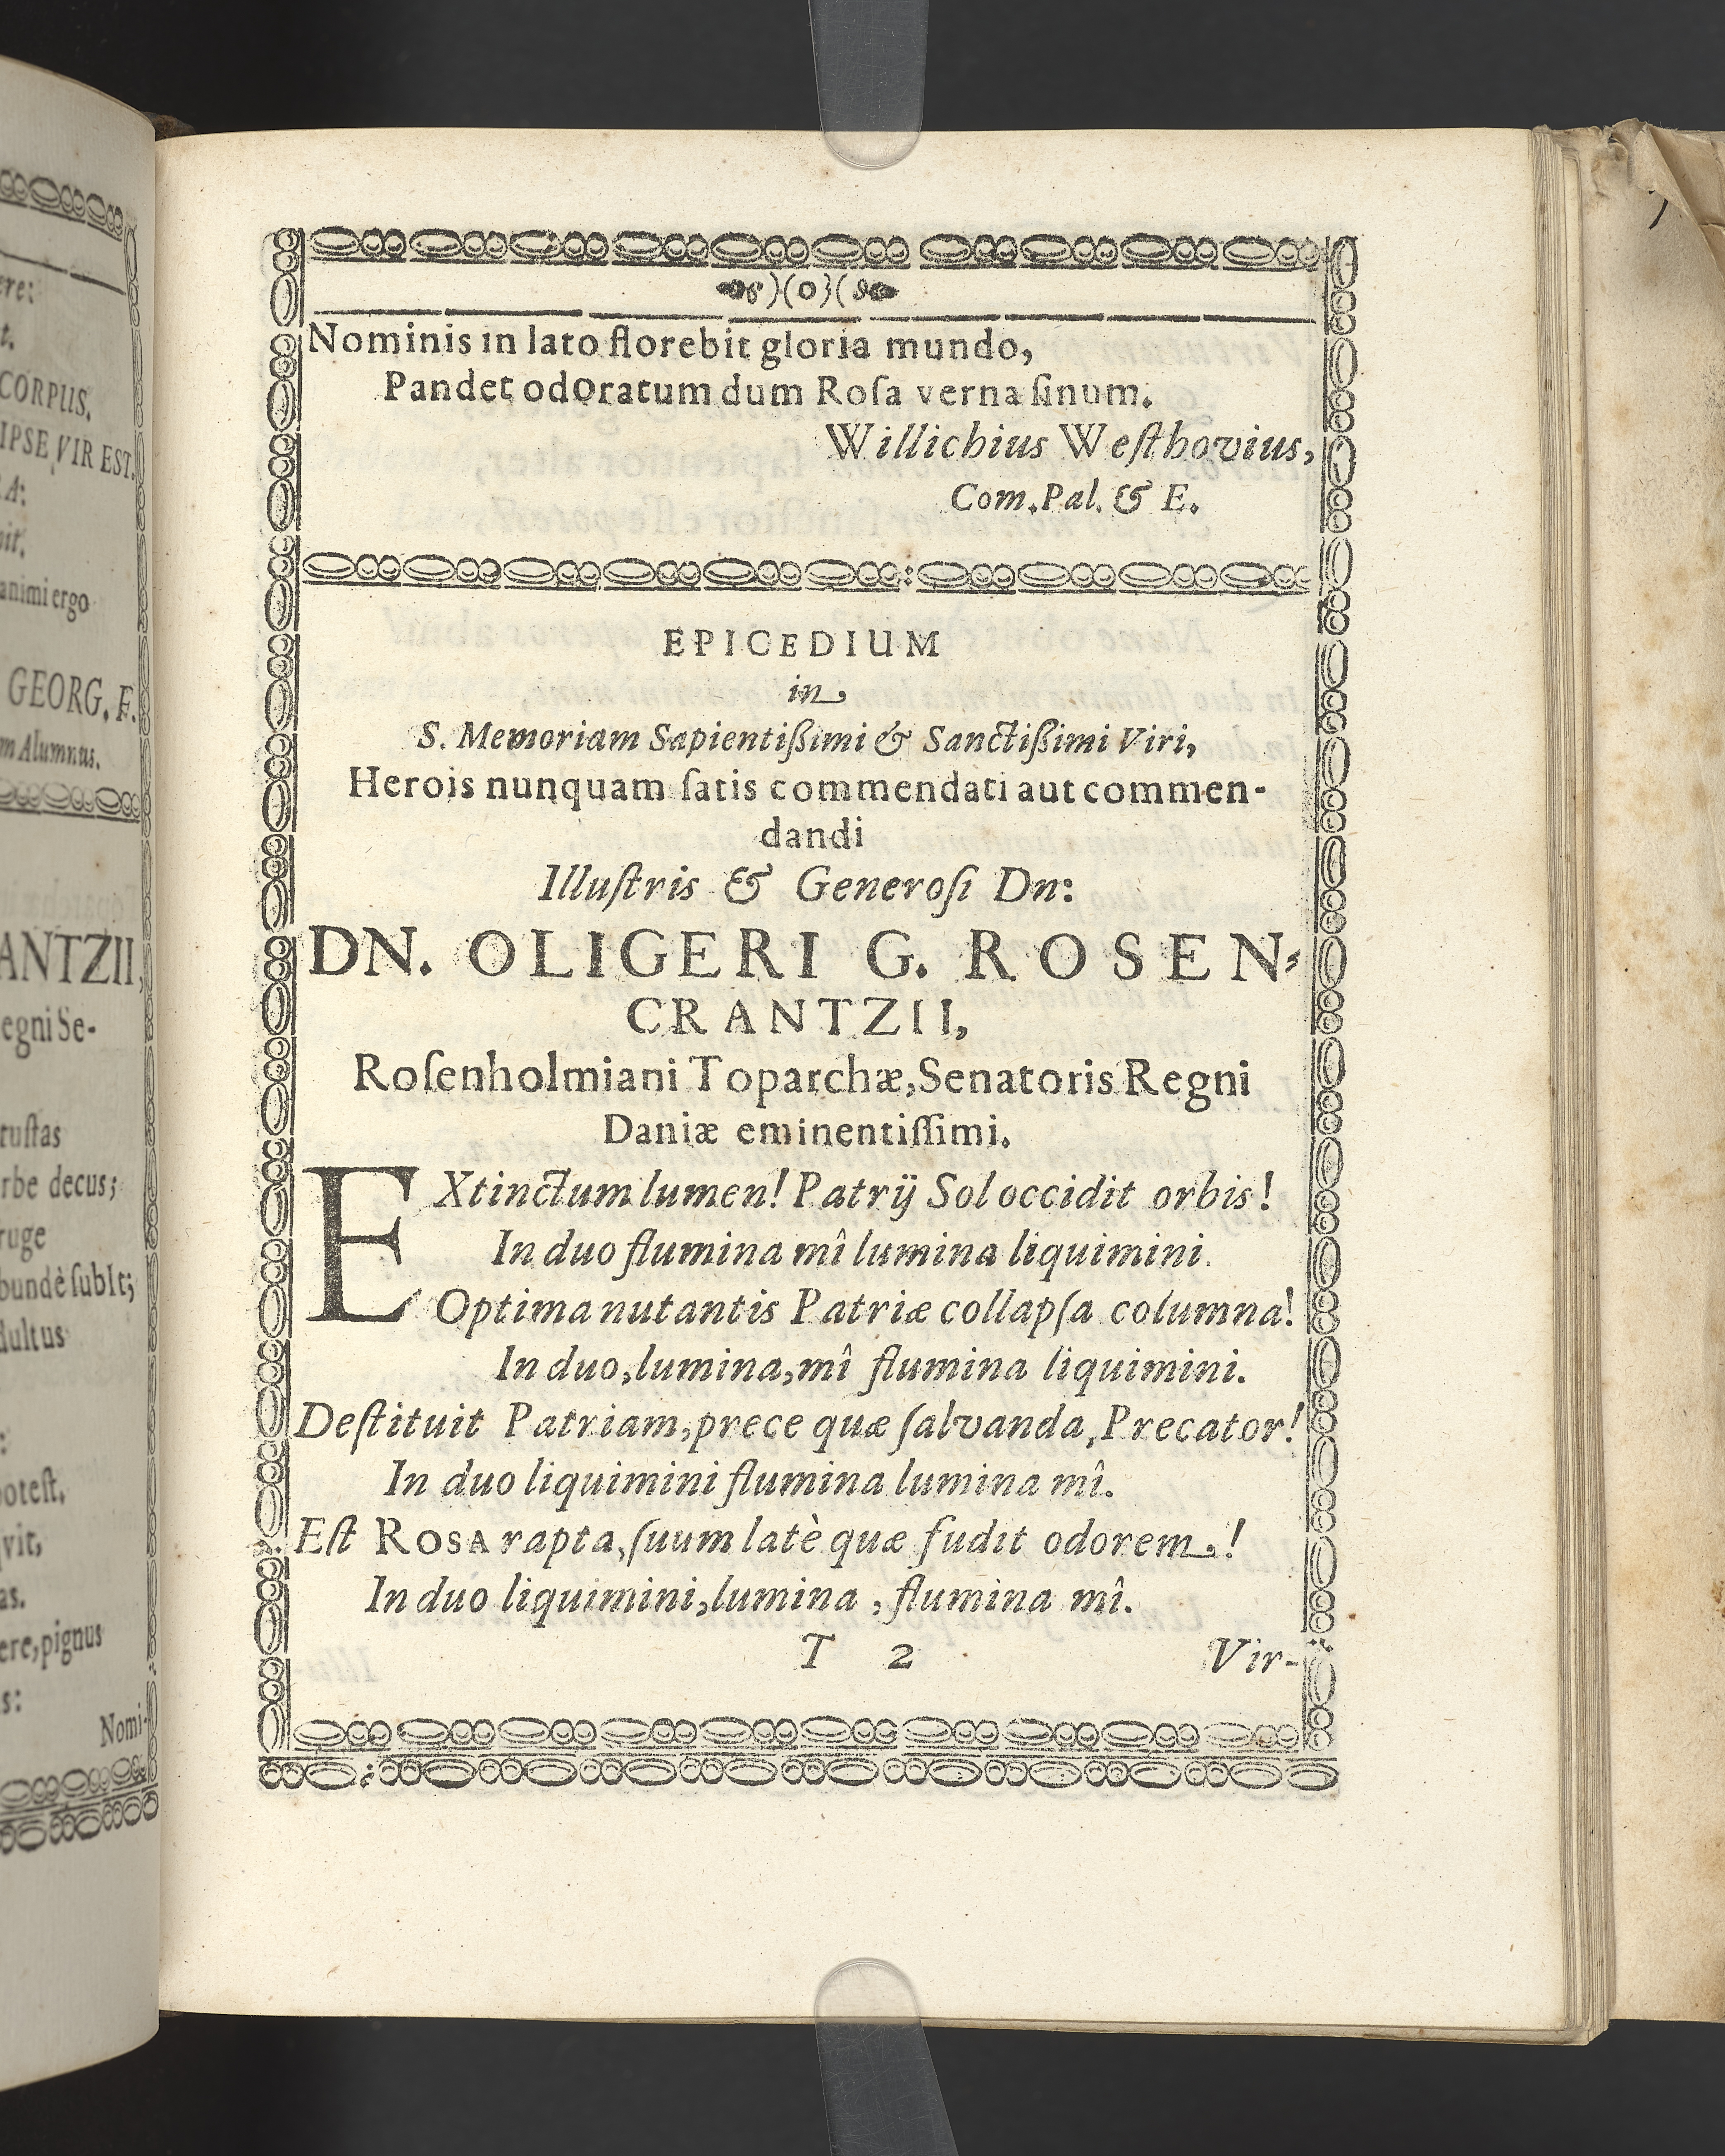 ere:
t.
CORPUS.
IPSE VIR EST.
A:
nit.
animi ergo
GEORG. F.
m Alumnus.
ANTZII,
egni Se-
tustas
rbe decus;
ruge
bundè subIt;
dultus
:
potest,
vit,
as.
ere, pignus
s:
Nomi-
)(0)(
Nominis in lato florebit gloria mundo,
Pandet odoratum dum Roſa verna ſinum.
Willichius Weſthovius,
Com. Pal. & E.
EPICEDIUM
in
S. Memoriam Sapientißimi & Sanctißimi Viri,
Herois nunquam ſatis commendati aut commen-
dandi
Illuſtris & Generoſi Dn:
DN. OLIGERI G. ROSEN-
CRANTZII,
Roſenholmiani Toparchæ, Senatoris Regni
Daniæ eminentiſſimi.
EXtinctum lumen! Patrij Sol occidit orbis!
In duo flumina mî lumina liquimini.
Optima nutantis Patriæ collapſa columna!
In duo, lumina, mî flumina liquimini.
Deſtituit Patriam, prece quæ ſalvanda, Precator!
In duo liquimini flumina lumina mî.
Eſt ROSA rapta, ſuum latè quæ fudit odorem.!
In duo liquimini, lumina, flumina mî.
T 2 Vir-